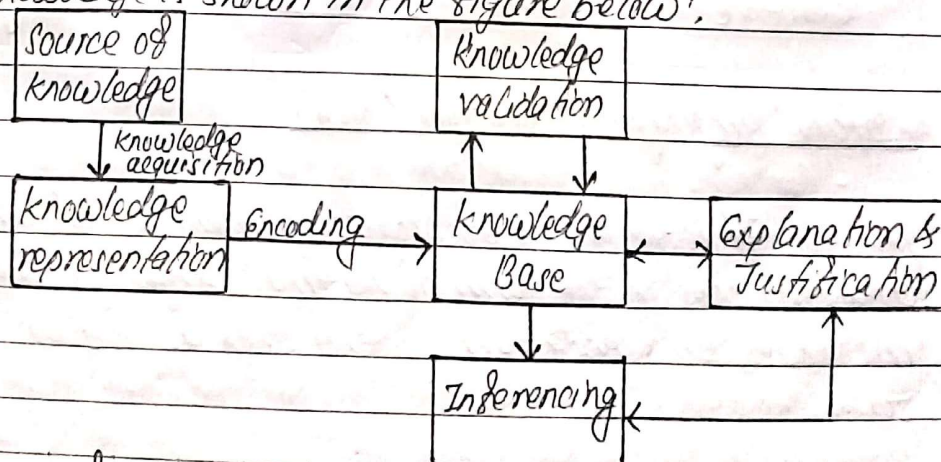 is shown in the figure below:
Source of
knowledge
knowledge
validation
knowledge
acquisition
knowledge
representation
Encoding
knowledge
Base
Explanation &
Justification
Inferencing